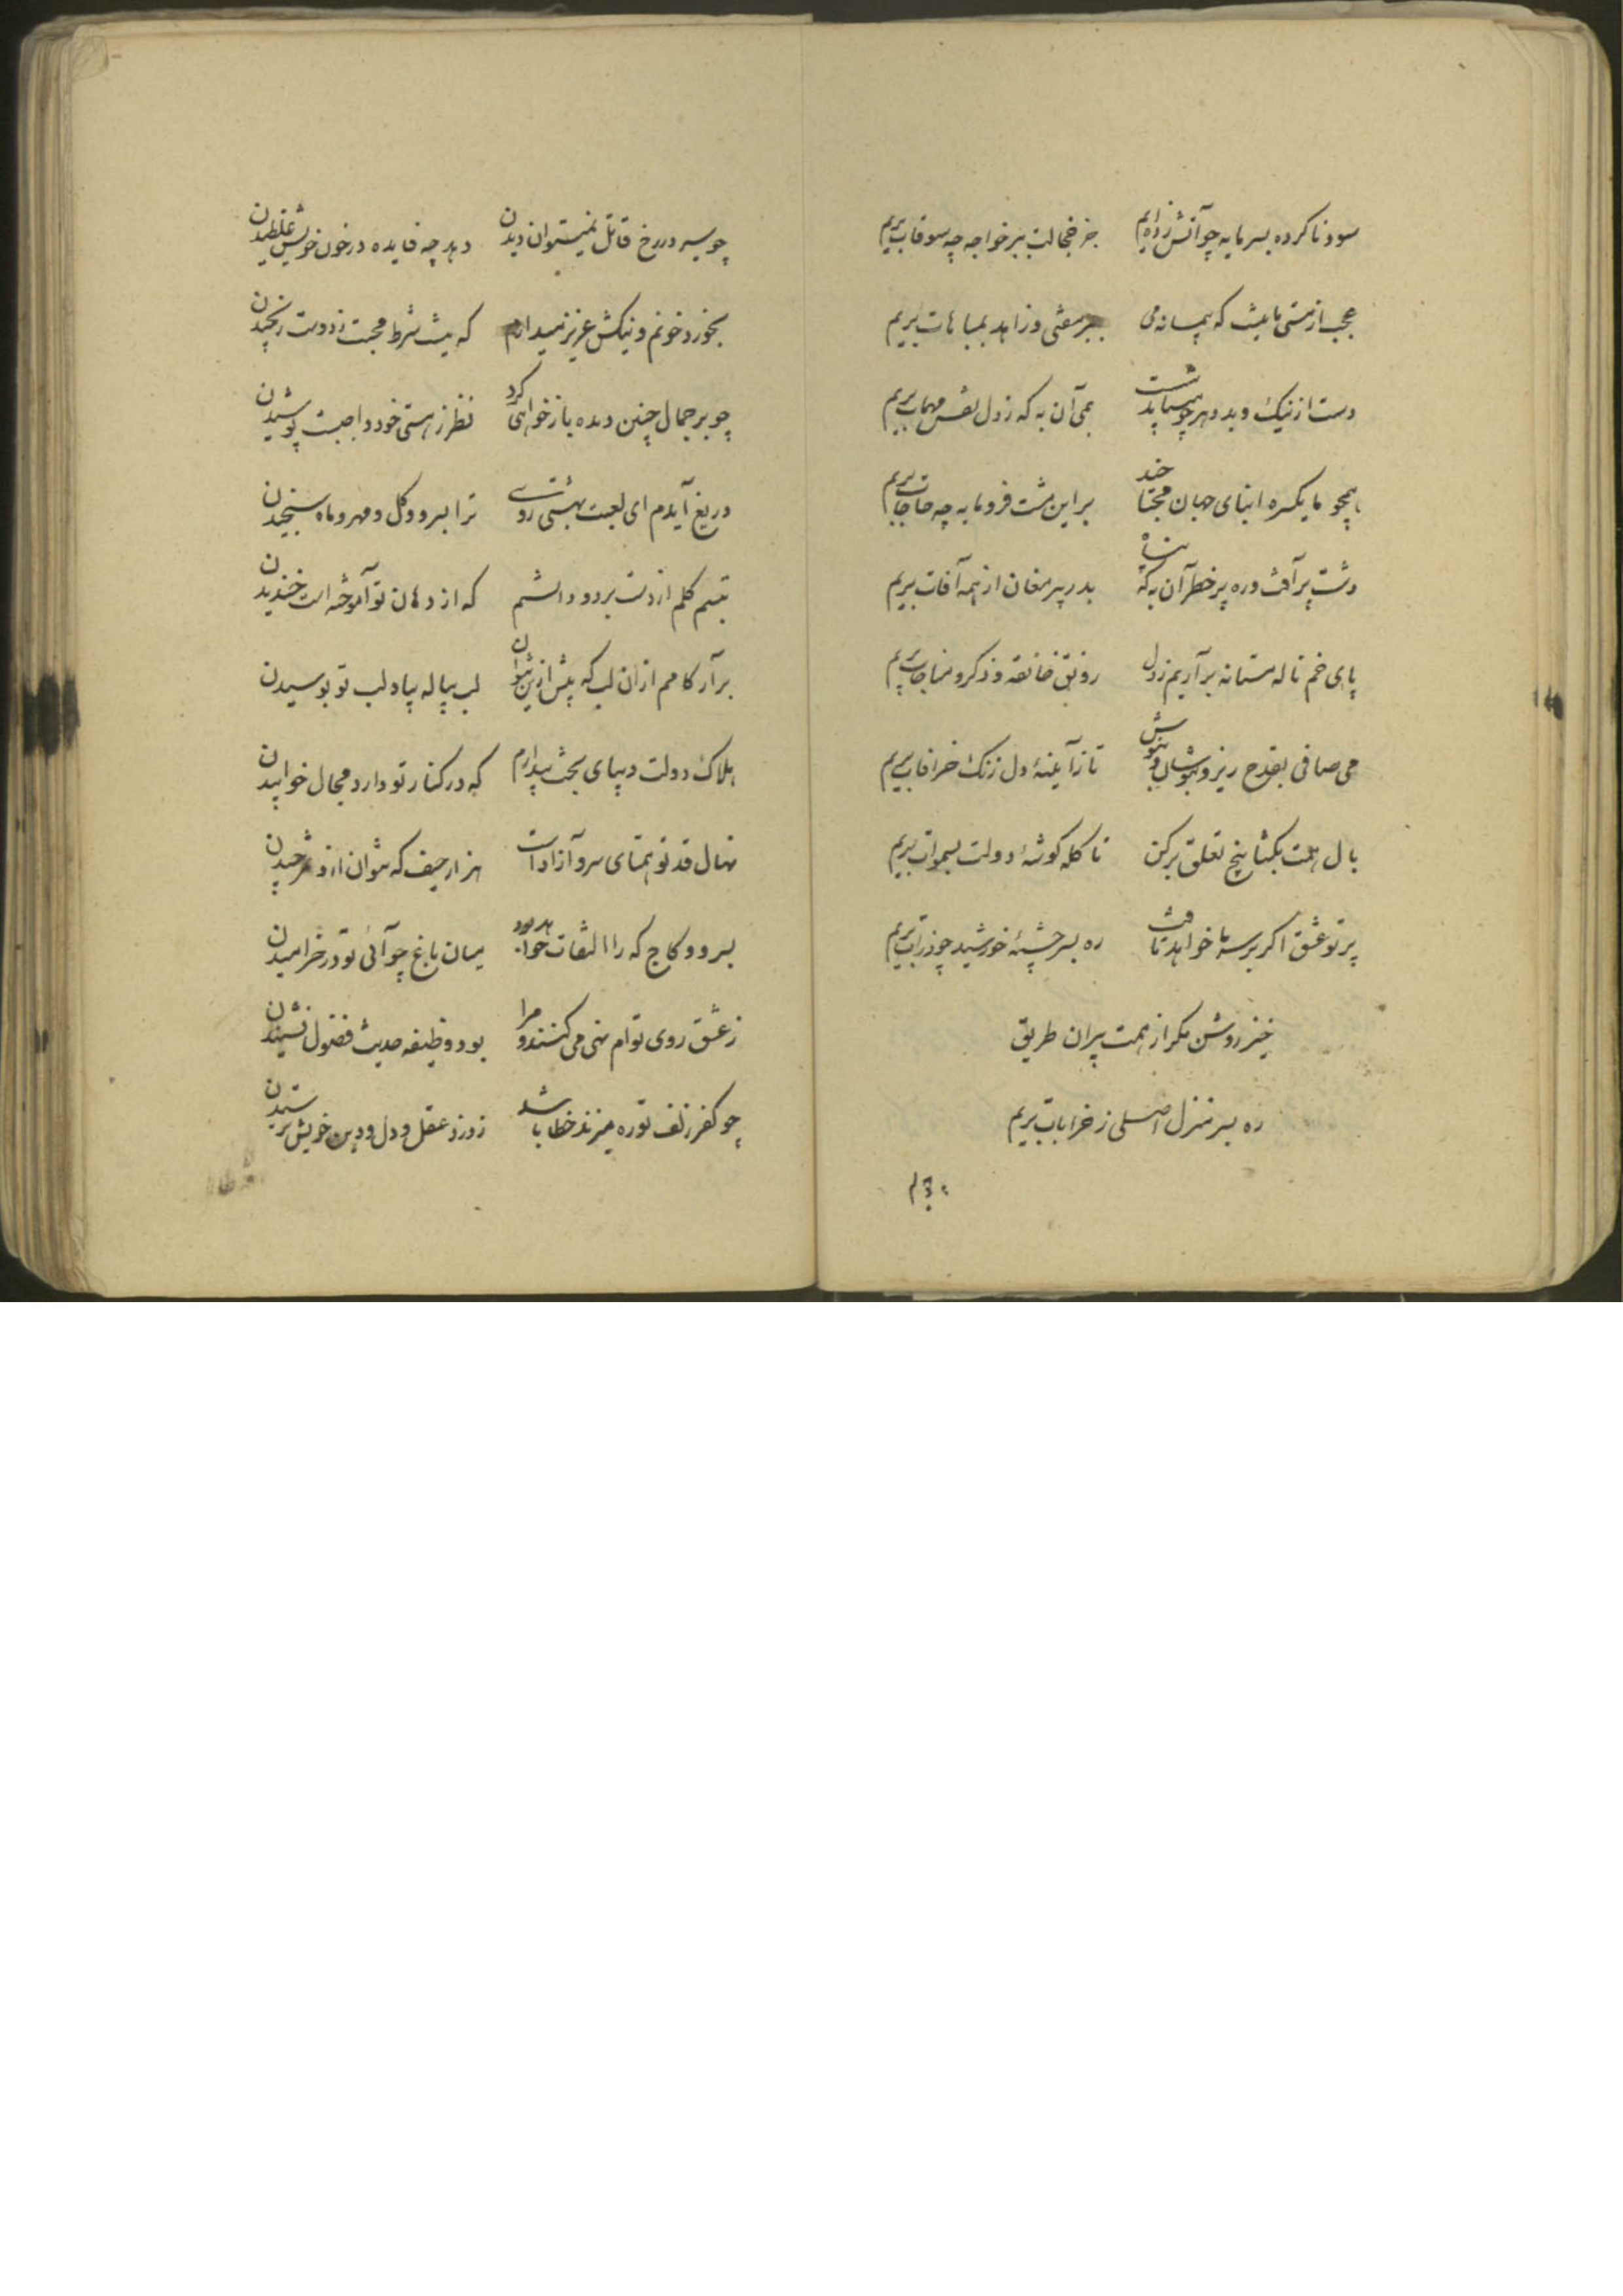 سود ناکرده بسرمایه چو آتش زده‌ایم جز خجالت ببر خواجه چه سوقات بریم
عجب از مستی ما نیست که پیمانه می ببر مفتی و زاهد بمباهات بریم
دست از نیک و بد دهر چو میباید شست بمی آن به که ز دل نقش مهمات بریم
همچو ما یکسره ابنای جهان محتاجند بر این مشت فرومایه چه حاجات بریم
دشت پر آفت و ره پر خطر آن به که پناه بدر پیر مغان از همه آفات بریم
پای خم ناله مستانه بر آریم ز دل رونق خانقه و ذکر و مناجات بریم
می صافی بقدح ریز و بنوشان و بنوش تا ز آیینهٔ دل زنگ خرافات بریم
بال همت بگشا بیخ تعلق برکن تا کله گوشهٔ دولت بسموات بریم
پرتو عشق اگر بر سر ما خواهد تافت ره بسر چشمهٔ خورشید چو ذرات بریم
خیز روشن مگر از همت پیران طریق
ره بسر منزل اصلی ز خرابات بریم
چو سیر در رخ قاتل نمیتوان دیدن دهد چه فایده در خون خویش غلطیدن
بخورد خونم و نیکش عزیز میدارم که نیست شرط محبت ز دوست رنجیدن
چو بر جمال چنین دیده باز خواهی کرد نظر ز هستی خود واجبست پوشیدن
دریغ آیدم ای لعبت بهشتی روی ترا بسرو و گل و مهر و ماه سنجیدن
تبسم گلم از دست برد و دانستم که از دهان تو آموخته است خندیدن
برآر کامم از آن لب که بیش ازین نتوان لب پیاله بیاد لب تو بوسیدن
هلاک دولت دیبای بخت بیدارم که در کنار تو دارد مجال خوابیدن
نهال قد تو همتای سرو آزاد است هزار حیف که نتوان ازو ثمر چیدن
بسرو و کاج که را التفات خواهد بود بیان باغ چو آئی تو در خرامیدن
ز عشق روی توام نهی می کنند و مرا بود وظیفه حدیث فضول نشنیدن
چو کفر زلف تو ره میزند خطا باشد ز دزد عقل و دل و دین خویش پرسیدن